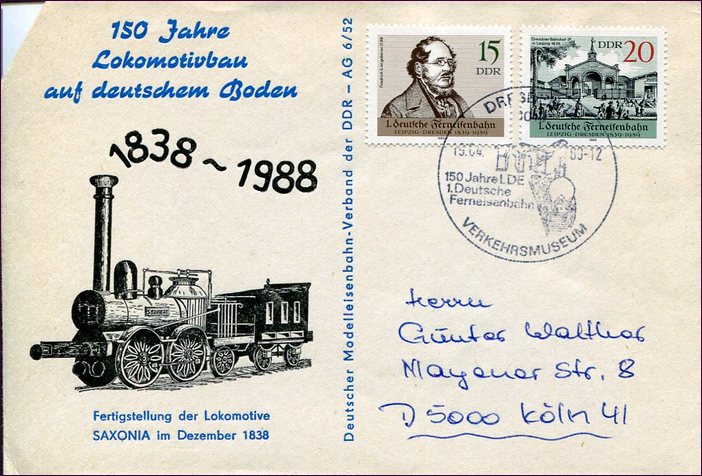 150 Jahre
Lokomotivbau
auf deutschem Boden
1838 ~ 1988
Fertigstellung der Lokomotive
SAXONIA im Dezember 1838
Deutscher Modelleisenbahn-Verband der DDR - AG 6/52
15
DDR
1. Deutsche Ferneisenbahn
LEIPZIG-DRESDEN 1839-1989
DDR 20
1. Deutsche Ferneisenbahn
LEIPZIG-DRESDEN 1839-1989
19.04. 89-12
150 Jahre LDE
1. Deutsche
Ferneisenbahn
VERKEHRSMUSEUM
Herrn
Günter Walther
Mayener Str. 8
D 5000 Köln 41